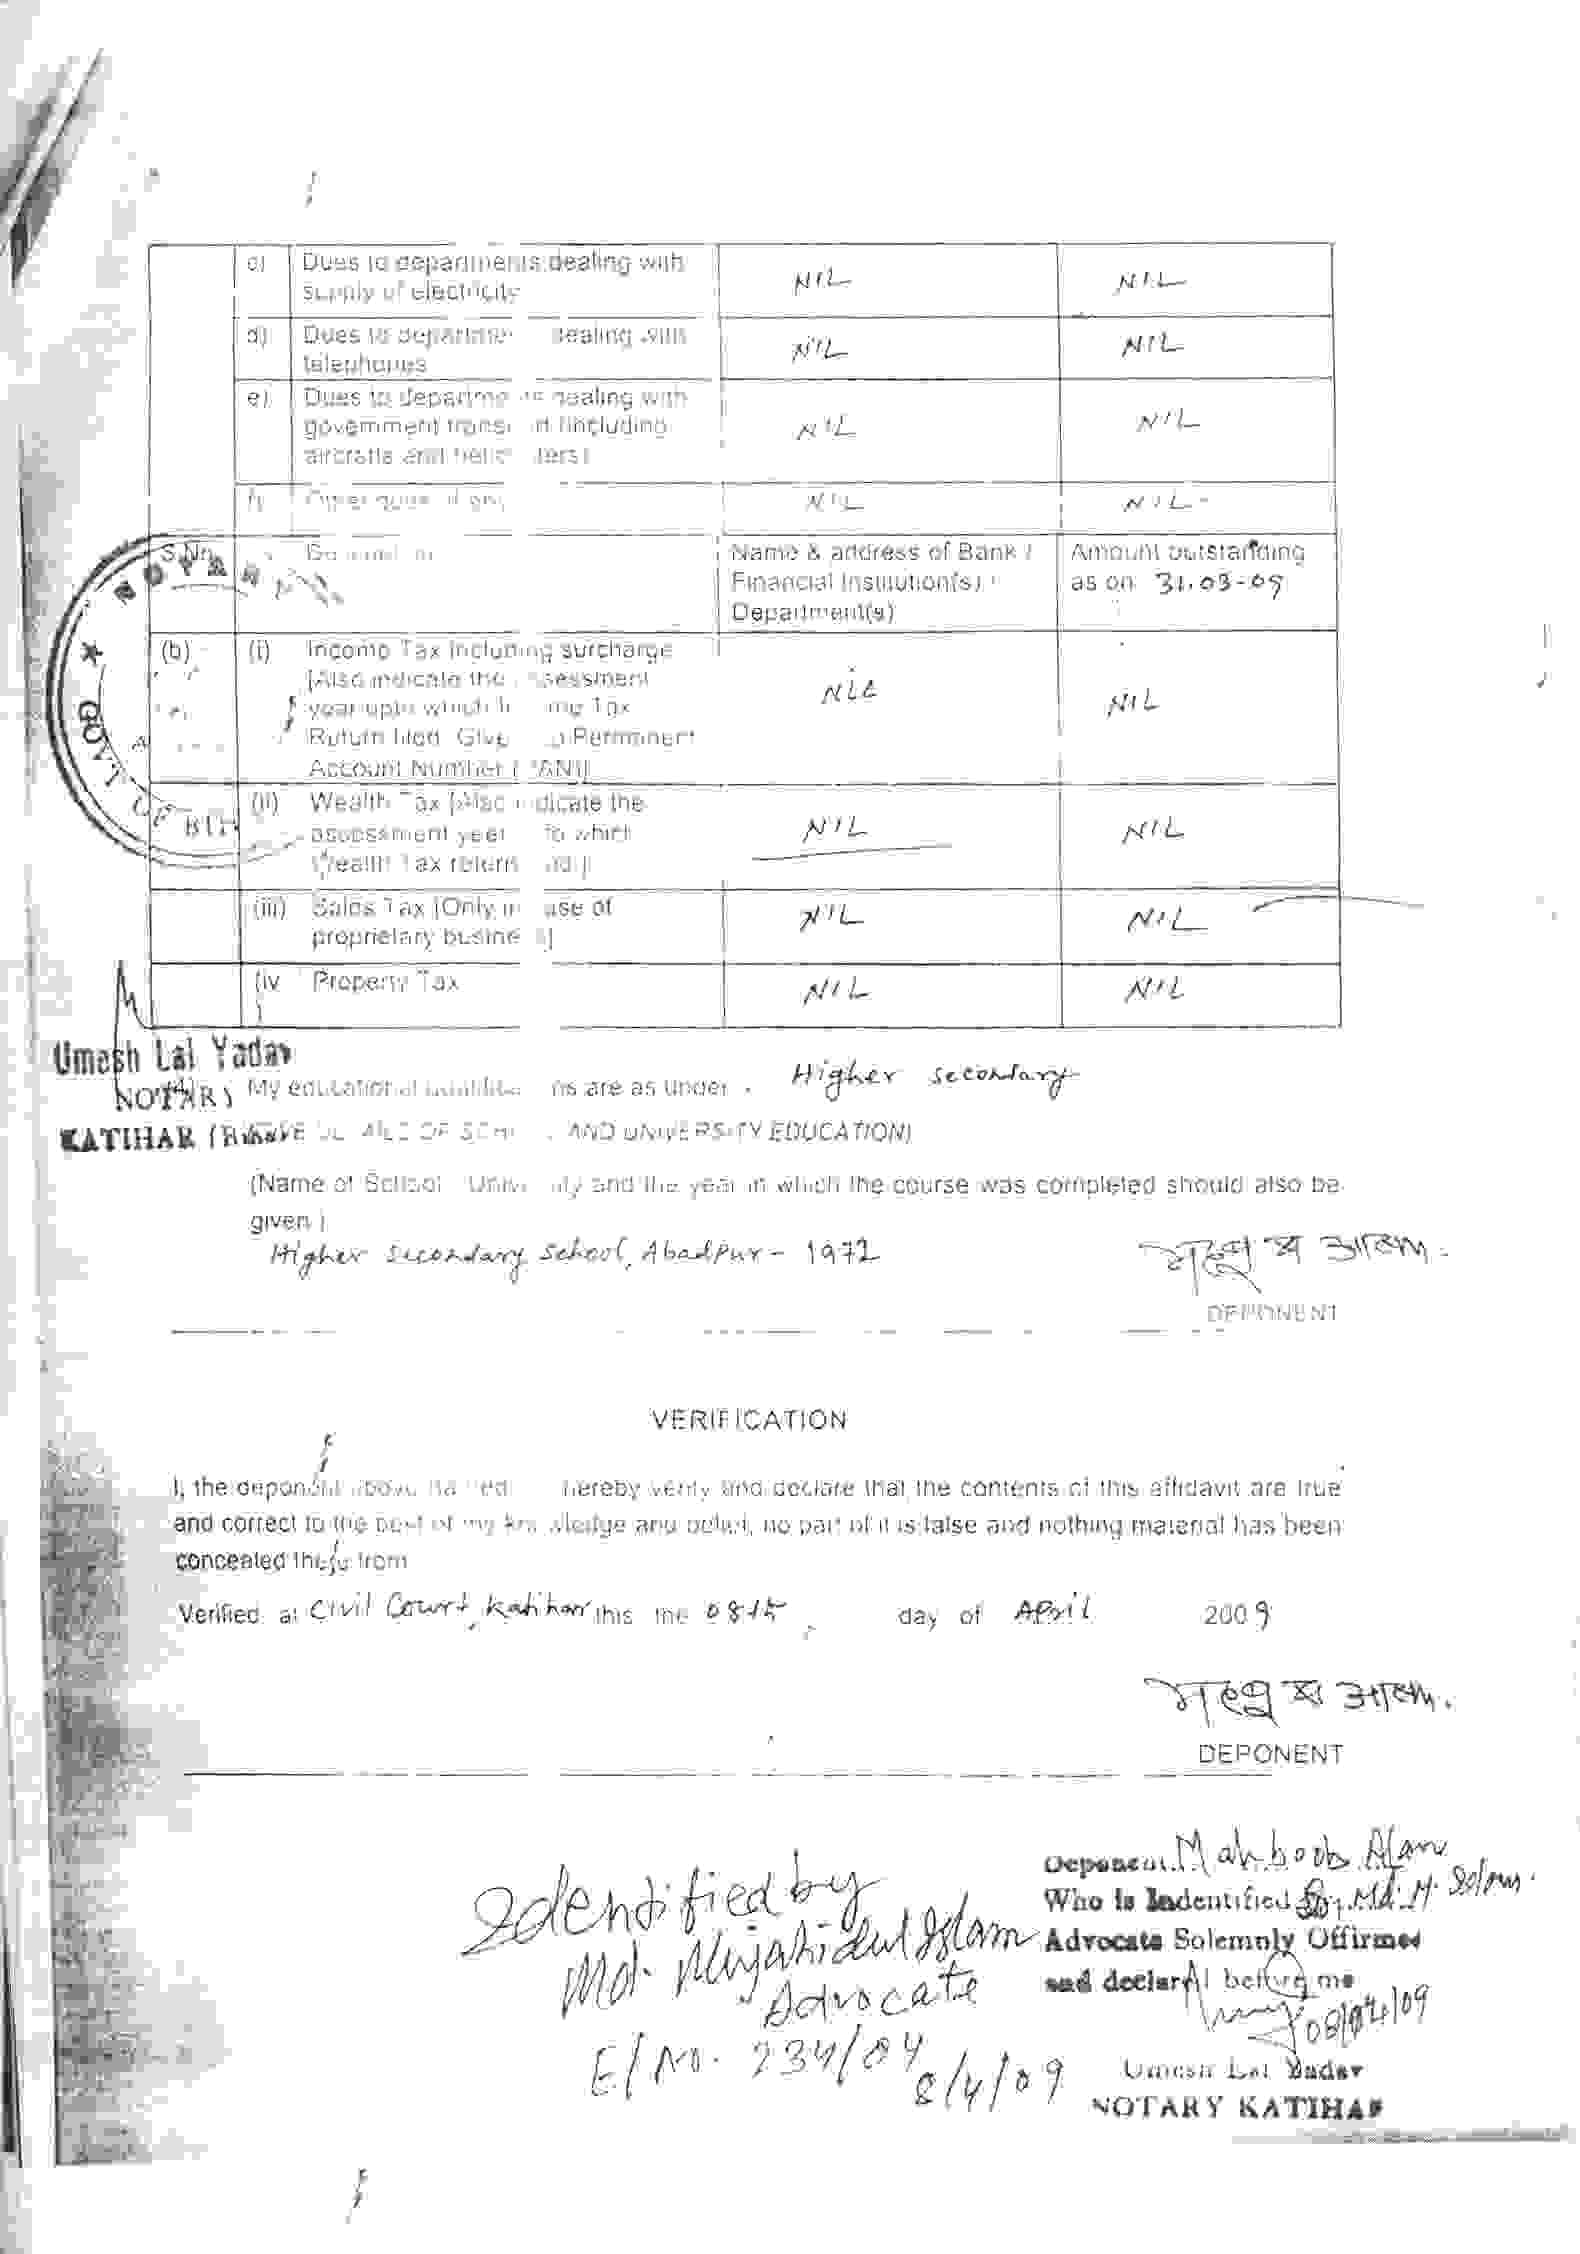 c) Dues to departments dealing with
supply of electricity
NIL NIL
d) Dues to departments dealing with
telephones
NIL NIL
e) Dues to departments dealing with
government transport (including
aircrafts and helicopters)
NIL NIL
f) Other dues, if any
NIL NIL
S.No.
Name & address of Bank /
Financial Institution(s) /
Department(s)
Amount outstanding
as on 31.03-09
NOTARY
GOVT. OF BIH
(b) (i) Income Tax including surcharge
[Also indicate the assessment
year upto which Income Tax
Return filed. Give also Permanent
Account Number (PAN)]
NIL NIL
(ii) Wealth Tax [Also indicate the
assessment year upto which
Wealth Tax return filed.]
NIL NIL
(iii) Sales Tax [Only in case of
proprietary business]
NIL NIL
(iv) Property Tax
NIL NIL
Umesh Lal Yadav
NOTARY
KATIHAR (Bihar)
(4) My educational qualifications are as under : Higher secondary
(GIVE DETAILS OF SCHOOL AND UNIVERSITY EDUCATION)
(Name of School / University and the year in which the course was completed should also be
given.)
Higher secondary school, Abadpur - 1972
DEPONENT
VERIFICATION
I, the deponent above named, hereby verify and declare that the contents of this affidavit are true
and correct to the best of my knowledge and belief, no part of it is false and nothing material has been
concealed there from
Verified at Civil Court, Katihar this the 08th day of April 2009
DEPONENT
Identified by
Md. Mujahidul Islam
Advocate
E/No. 234/84
8/4/09
Deponent Mahboob Alam
Who is Indentified By Md. M. Islam.
Advocate Solemnly Offirmed
and declared before me
08/04/09
Umesh Lal Yadav
NOTARY KATIHAR